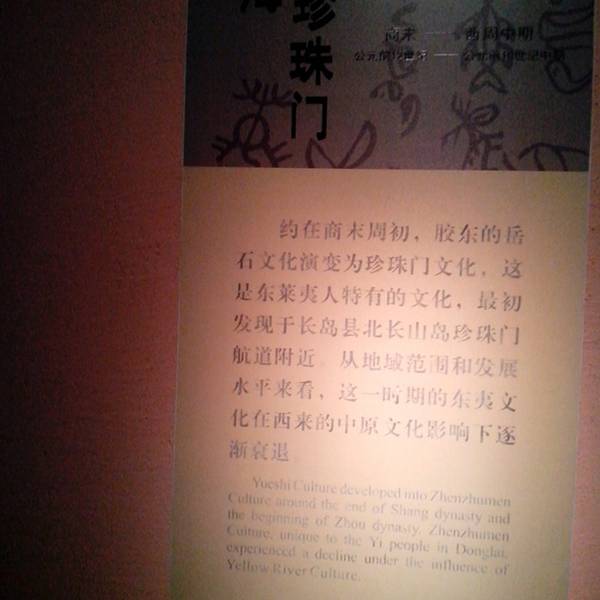 珍珠门
商末 —— 西周中期
约在商末周初，胶东的岳
石文化演变为珍珠门文化。这
是东莱夷人特有的文化，最初
发现于长岛县北长山岛珍珠门
航道附近。从地域范围和发展
水平来看，这一时期的东夷文
化在西来的中原文化影响下逐
渐衰退。
Yueshi Culture developed into Zhenzhumen
Culture around the end of Shang dynasty and
the beginning of Zhou dynasty. Zhenzhumen
Culture, unique to the Yi people in Donglai,
experienced a decline under the influence of
Yellow River Culture.